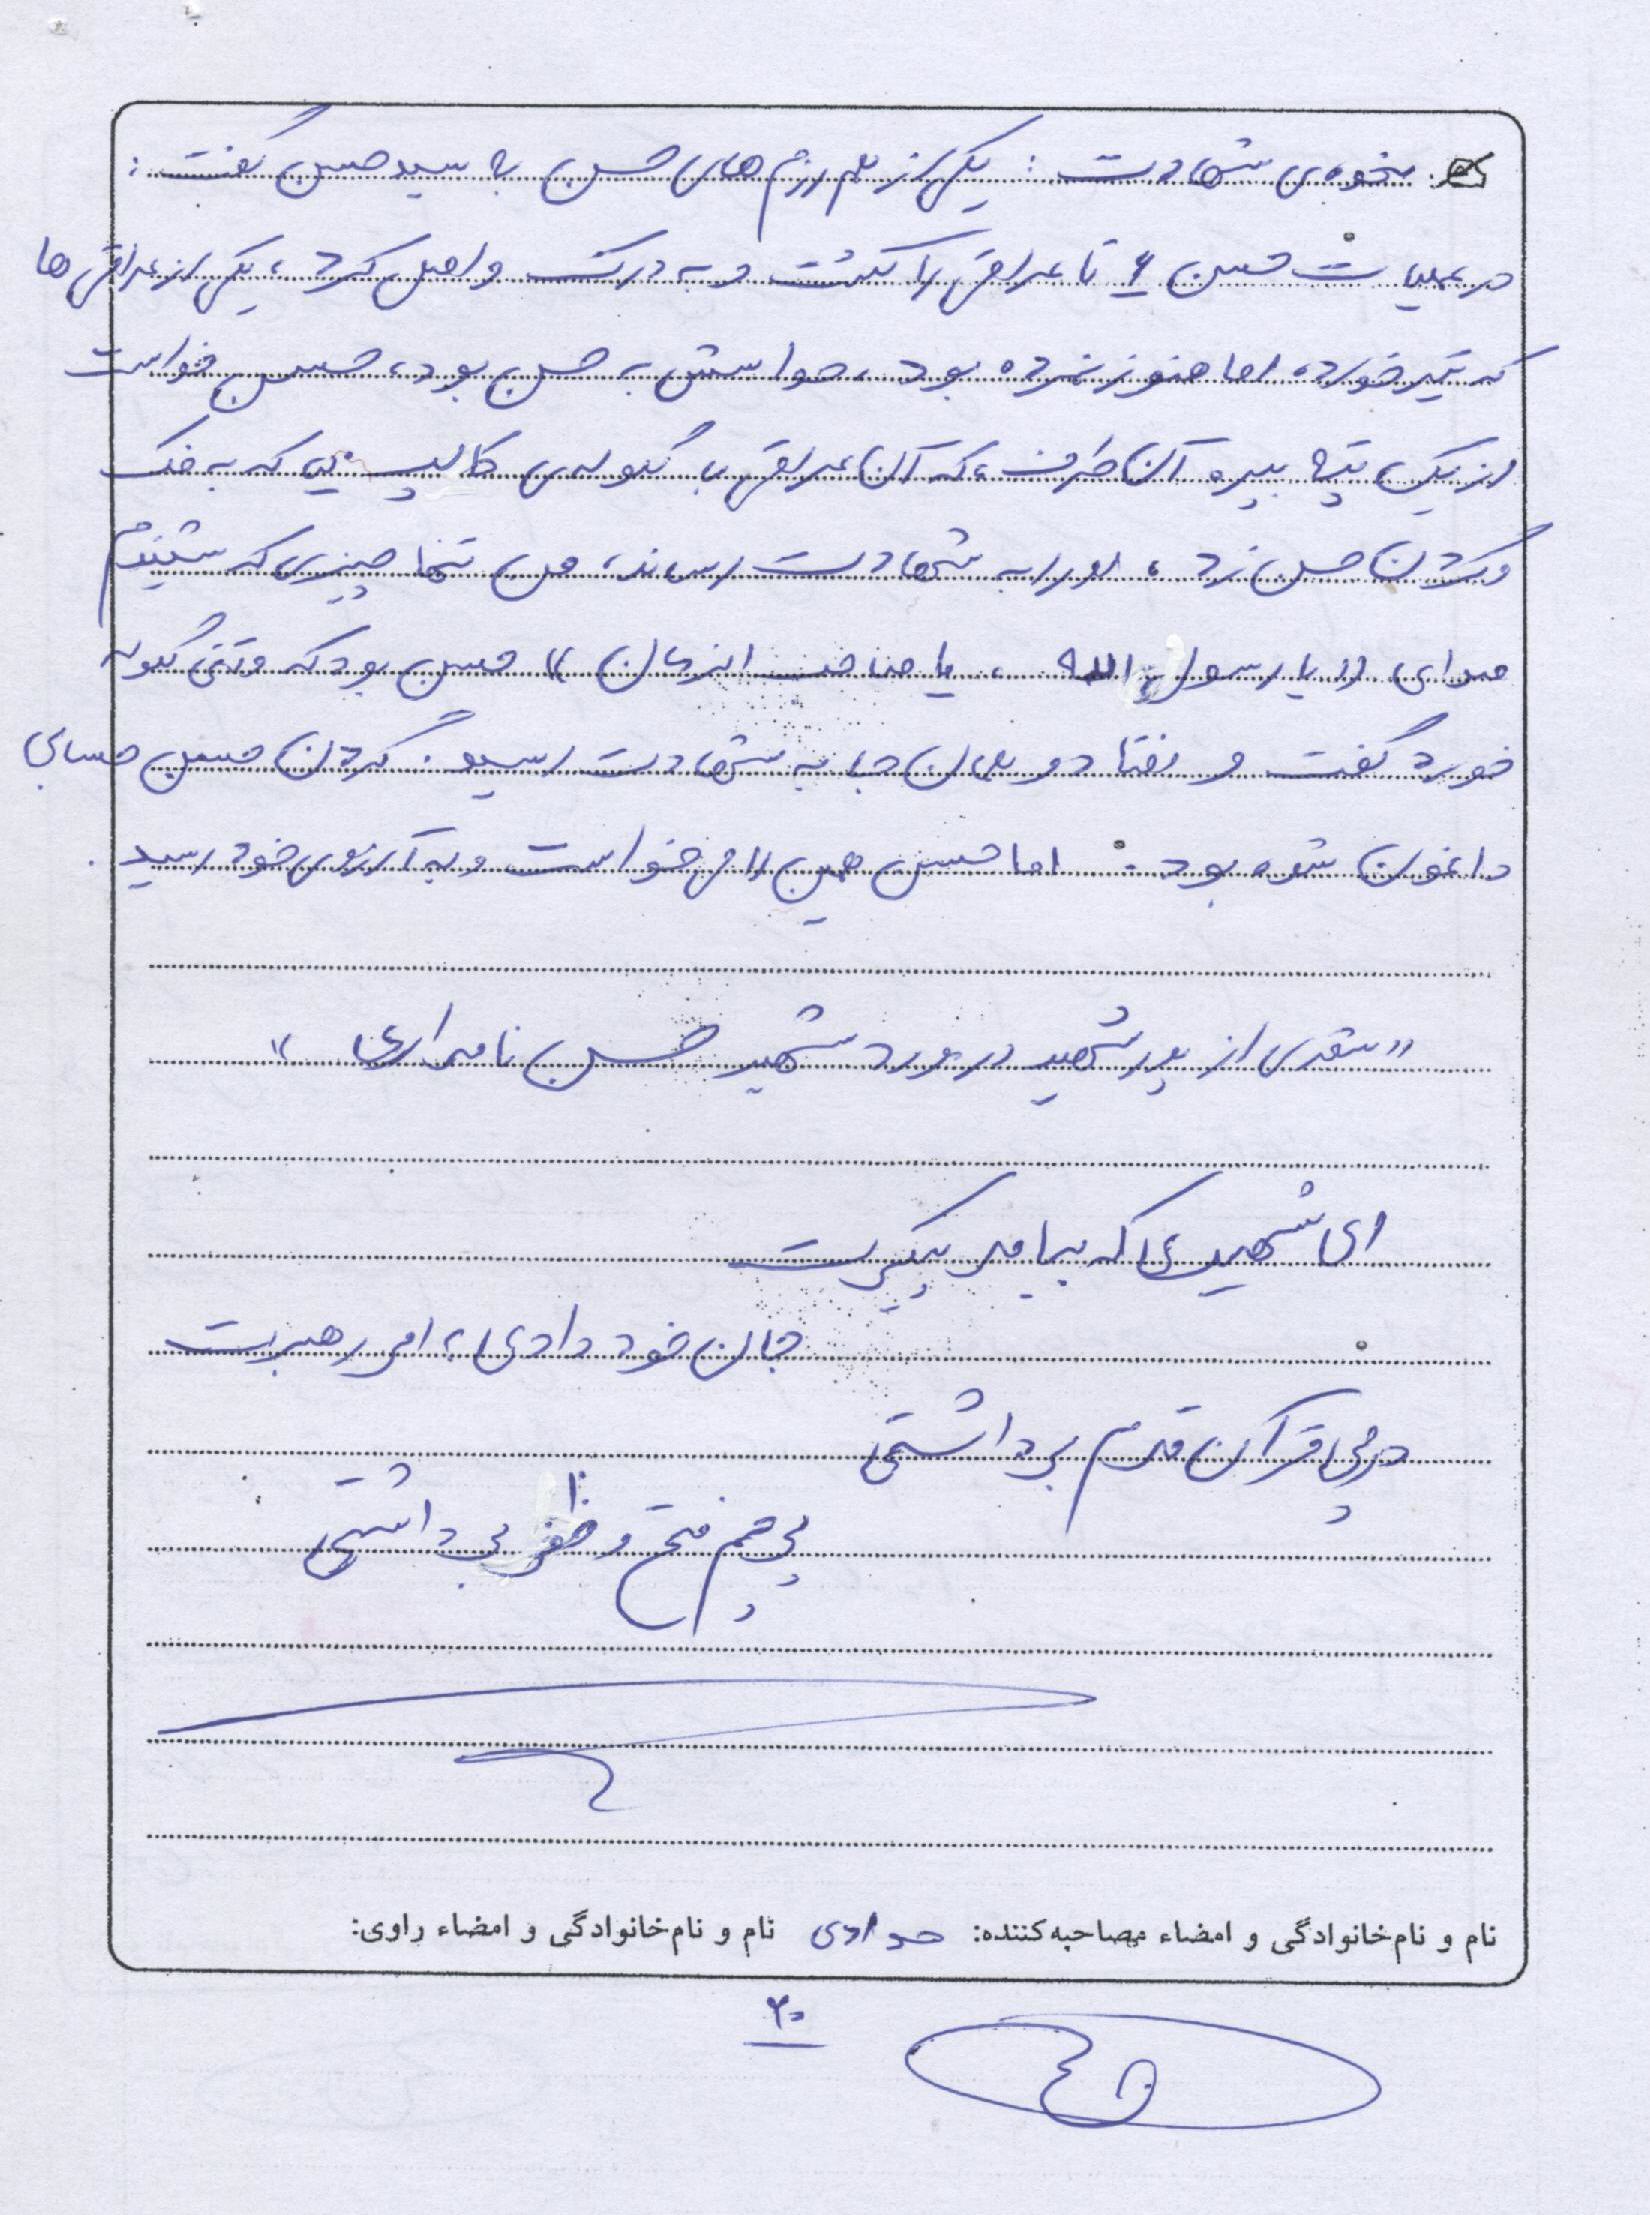 نحوه‌ی شهادت : یکی از هم رزم های حسن به سید حسن گفت :
در عملیات حسن ۶ تا عراقی را کشت و به درک واصل کرد ، یکی از عراقی ها
که تیر خورد، اما هنوز نمرده بود ، حواسش به حسن بود، حسن خواست
از یک تپه بپره آن طرف، که آن عراقی با گلوله‌ی کالیبر که به فک
و گردن حسن زد ، او را به شهادت رساند، من تنها چیزی که شنیدم
صدای «یا رسول الله ، یا صاحب الزمان » حسن بود که وقتی گلوله
خورد گفت و افتاد و همان جا به شهادت رسید . گردن حسن حسابی
داغون شده بود . اما حسن همین را می خواست و به آرزوی خود رسید .
« شعری از پدر شهید در مورد شهید حسن نامداری »
ای شهیدی که بیامد پیکرت
جان خود دادی ، امر رهبرت
در پی قرآن قدم برداشتی
پرچم فتح و ظفر برداشتی
نام و نام‌خانوادگی و امضاء مصاحبه‌کننده: حدادی نام و نام‌خانوادگی و امضاء راوی:
۲۰